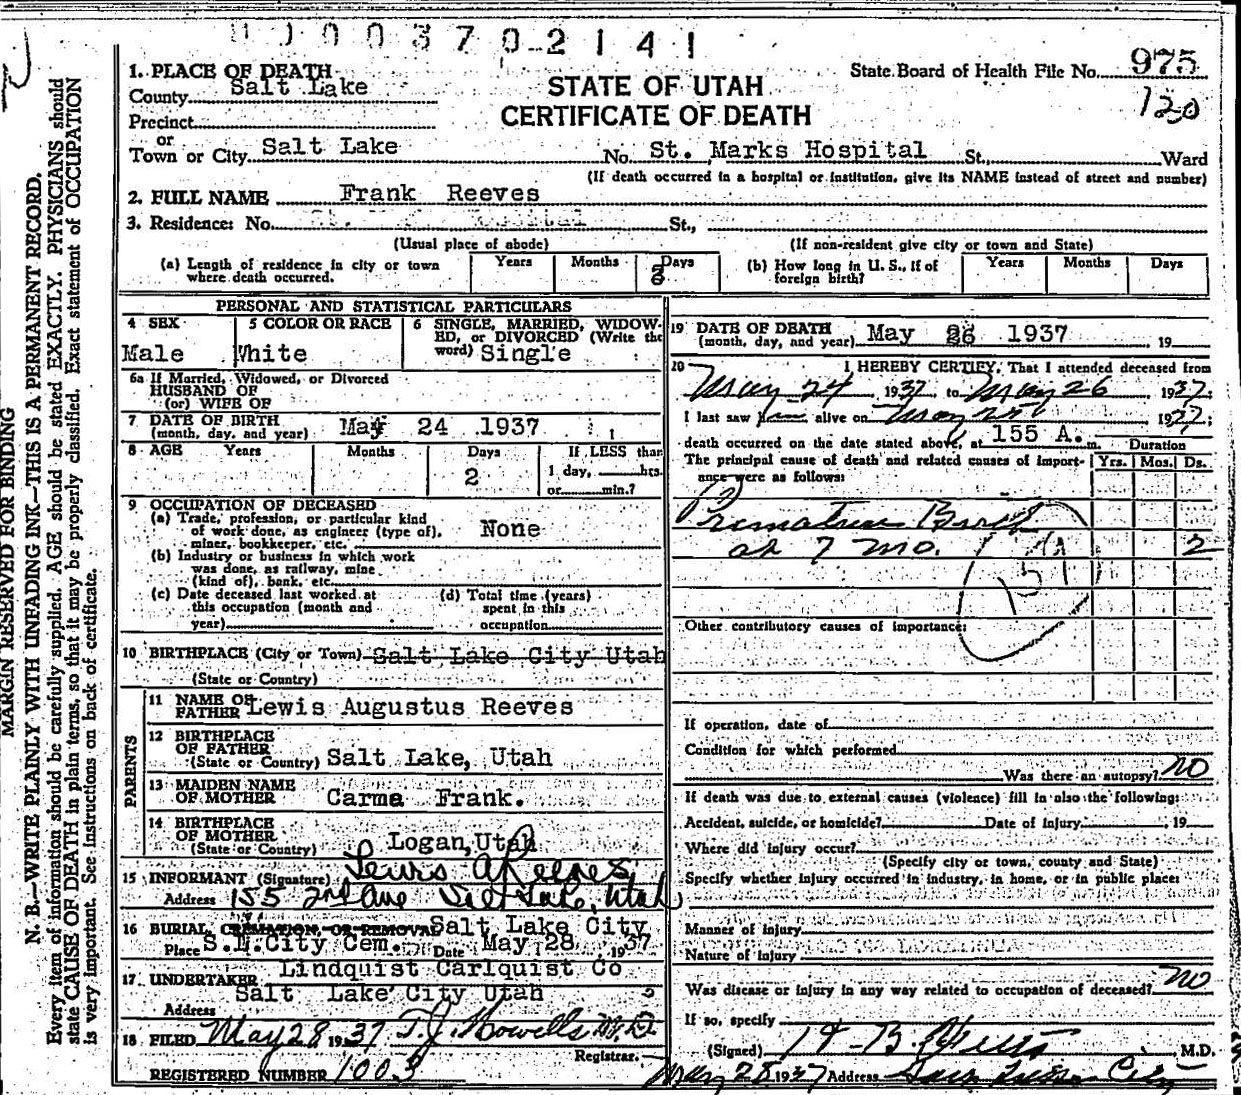 0 0 0 3 7 0 2 1 4 1
1. PLACE OF DEATH
County Salt Lake
Precinct
or
Town or City Salt Lake
STATE OF UTAH
CERTIFICATE OF DEATH
State Board of Health File No. 975
120
No. St. Marks Hospital St., Ward
(If death occurred in a hospital or institution, give its NAME instead of street and number)
2. FULL NAME Frank Reeves
3. Residence: No. St.,
(Usual place of abode) (If non-resident give city or town and State)
(a) Length of residence in city or town where death occurred. Years Months Days
(b) How long in U. S., if of foreign birth? Years Months Days
PERSONAL AND STATISTICAL PARTICULARS
4 SEX Male
5 COLOR OR RACE White
6 SINGLE, MARRIED, WIDOWED, or DIVORCED (Write the word) Single
6a If Married, Widowed, or Divorced
HUSBAND OF
(or) WIFE OF
7 DATE OF BIRTH (month, day, and year) May 24 1937
8 AGE Years Months Days 2 If LESS than 1 day, hrs. or min.?
9 OCCUPATION OF DECEASED
(a) Trade, profession, or particular kind of work done, as engineer (type of), miner, bookkeeper, etc. None
(b) Industry or business in which work was done, as railway, mine (kind of), bank, etc.
(c) Date deceased last worked at this occupation (month and year)
(d) Total time (years) spent in this occupation
10 BIRTHPLACE (City or Town) Salt Lake City Utah
(State or Country)
PARENTS
11 NAME OF FATHER Lewis Augustus Reeves
12 BIRTHPLACE OF FATHER (State or Country) Salt Lake, Utah
13 MAIDEN NAME OF MOTHER Carma Frank.
14 BIRTHPLACE OF MOTHER (State or Country) Logan, Utah
15 INFORMANT (Signature) Lewis A Reeves
Address 155 2nd Ave Salt Lake, Utah
16 BURIAL, CREMATION, OR REMOVAL Salt Lake City
Place S.L. City Cem. Date May 28 1937
17 UNDERTAKER Lindquist Carlquist Co
Address Salt Lake City Utah
18 FILED May 28 1937 T. J. Howells M.D.
Registrar.
REGISTERED NUMBER 1003
19 DATE OF DEATH (month, day, and year) May 26 1937 19
20 I HEREBY CERTIFY, That I attended deceased from
May 24 1937 to May 26 1937;
I last saw alive on May 19
death occurred on the date stated above, at 155 A. m.
Duration
The principal cause of death and related causes of importance were as follows: Yrs. Mos. Ds.
Premature Birth
at 7 mo. 2
Other contributory causes of importance:
If operation, date of
Condition for which performed
Was there an autopsy? no
If death was due to external causes (violence) fill in also the following:
Accident, suicide, or homicide? Date of injury , 19
Where did injury occur?
(Specify city or town, county and State)
Specify whether injury occurred in industry, in home, or in public place:
Manner of injury
Nature of injury
Was disease or injury in any way related to occupation of deceased? no
If so, specify
(Signed) M.D.
May 28 1937 Address City
MARGIN RESERVED FOR BINDING
N. B.—WRITE PLAINLY WITH UNFADING INK—THIS IS A PERMANENT RECORD.
Every item of information should be carefully supplied. AGE should be stated EXACTLY. PHYSICIANS should
state CAUSE OF DEATH in plain terms, so that it may be properly classified. Exact statement of OCCUPATION
is very important. See instructions on back of certificate.